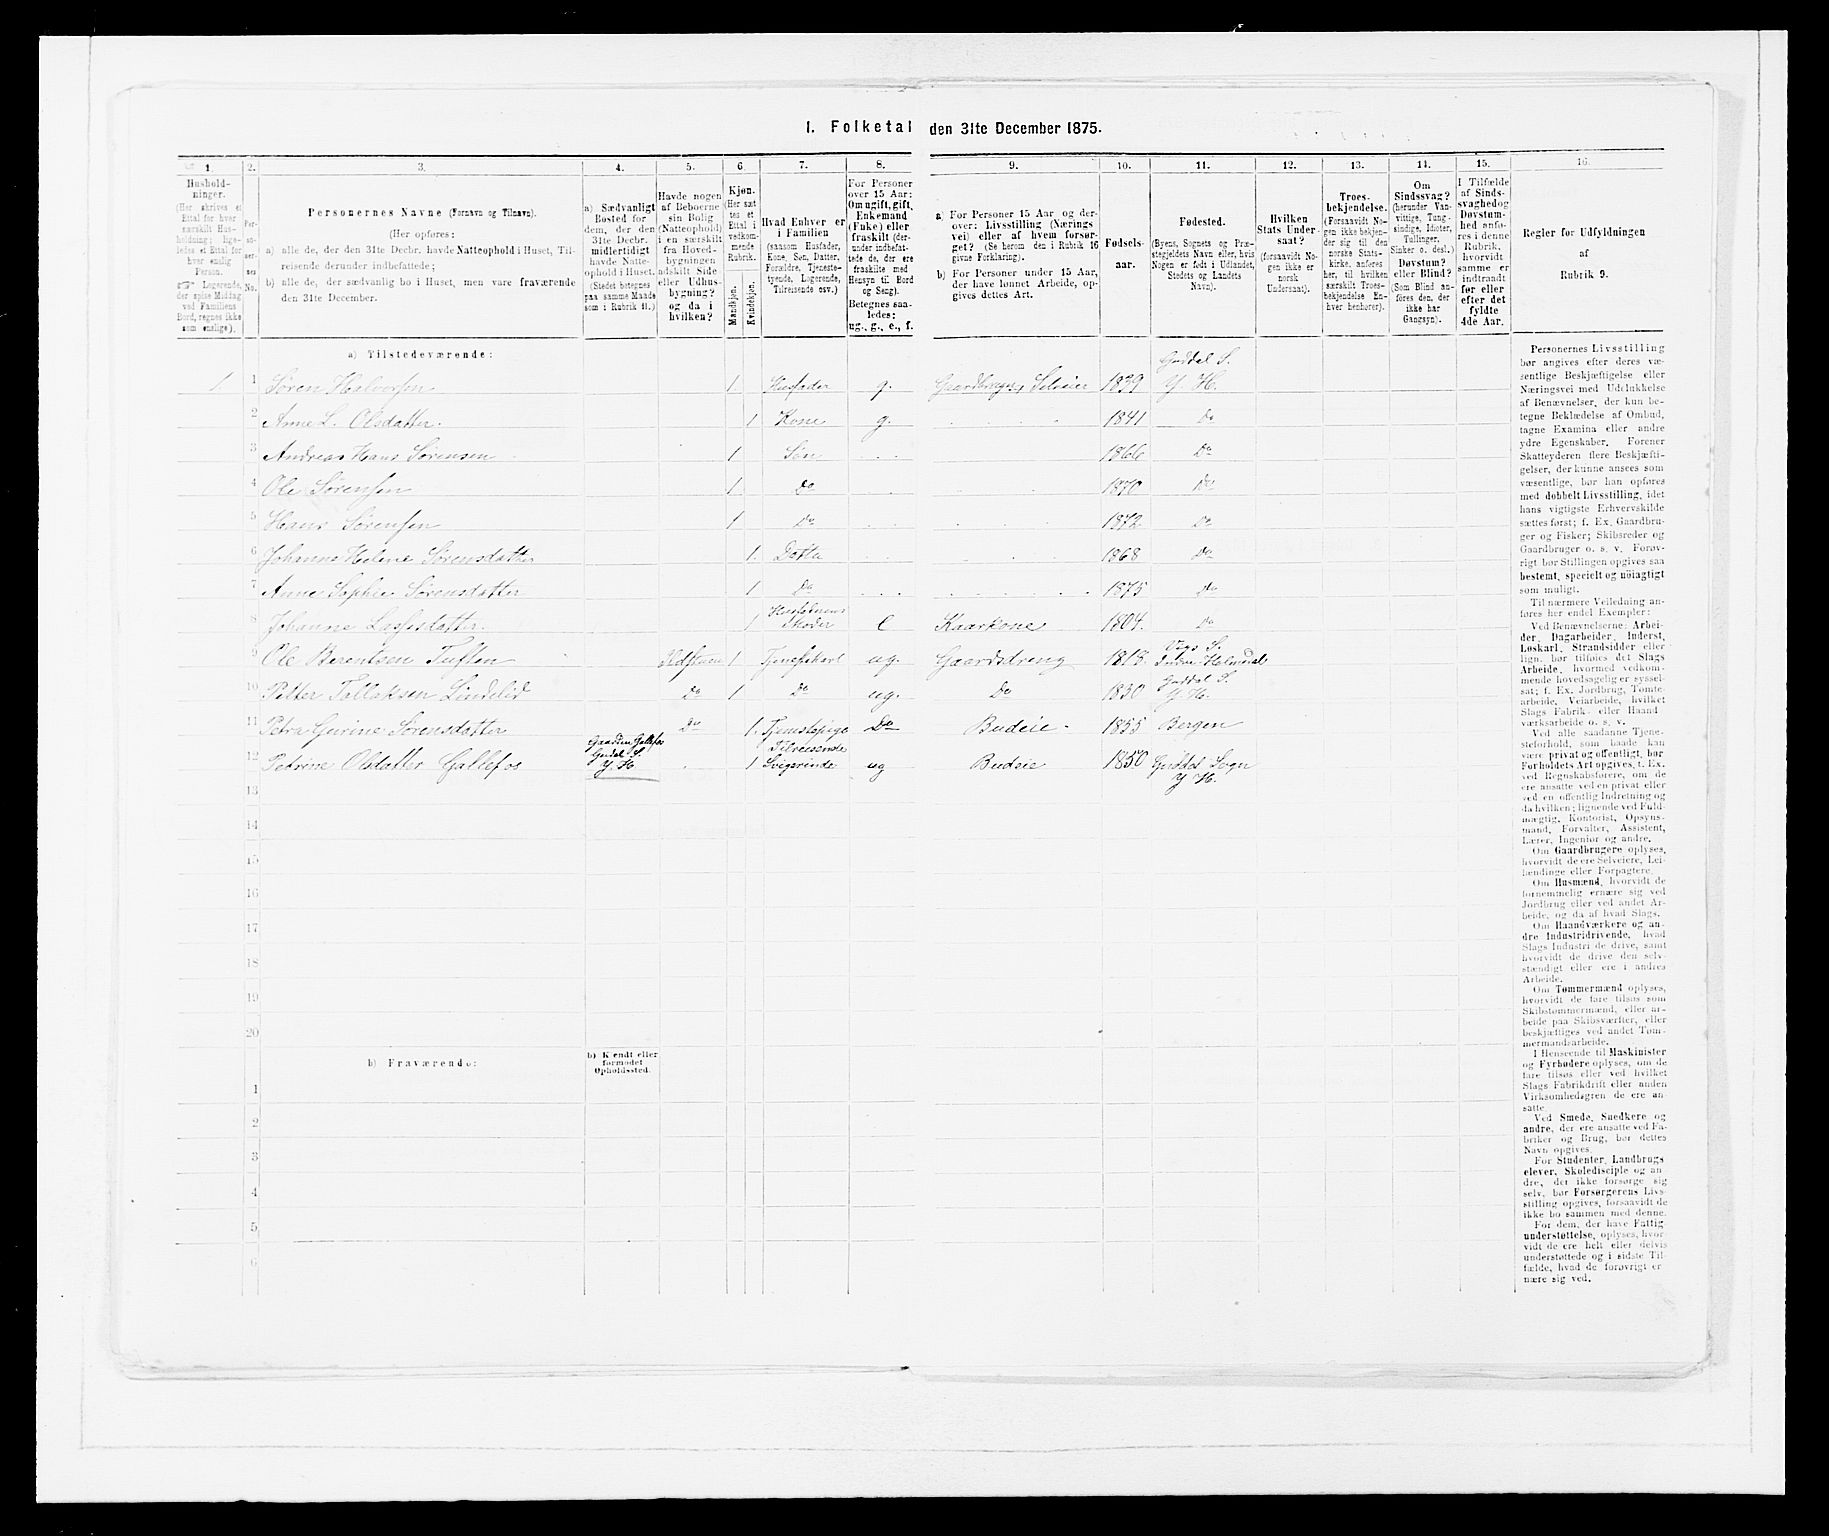 I. Folketal den 31te December 1875.
1. 2. 3. 4. 5. 6. 7. 8. 9. 10. 11. 12. 13. 14. 15. 16.
Hushold-
ninger.
(Her skrives et
Ettal for hver
særskilt Hus-
holdning; lige-
ledes et Ettal for
hver enslig
Person.
☞ Logerende,
der spise Middag
ved Familiens
Bord, regnes ikke
som enslige).
Per-
so-
ner-
nes
No.
Personernes Navne (Fornavn og Tilnavn).
(Her opføres:
a) alle de, der den 31te Decbr. havde Natteophold i Huset, Til-
reisende derunder indbefattede;
b) alle de, der sædvanlig bo i Huset, men vare fraværende
den 31te December.
a) Sædvanligt
Bosted for
dem, der den
31te Decbr.
midlertidigt
havde Natte-
ophold i Huset.
(Stedet betegnes
paa samme Maade
som i Rubrik 11.)
Havde nogen
af Beboerne
sin Bolig
(Natteophold)
i en særskilt
fra Hoved-
bygningen
adskilt Side
eller Udhus-
bygning?
og da i
hvilken?
Kjøn.
(Her sæt
tes et
Ettal i
vedkom-
mende
Rubrik.
Mandkjøn.
Kvindekjøn.
Hvad Enhver er
i Familien
(saasom Husfader,
Kone, Søn, Datter,
Forældre, Tjeneste-
tyende, Logerende,
Tilreisende osv.)
For Personer
over 15 Aar:
Om ugift, gift,
Enkemand
(Enke) eller
fraskilt (der-
under indbefat-
tede de, der ere
fraskilte med
Hensyn til Bord
og Seng).
Betegnes saa-
ledes:
ug., g., e., f.
a) For Personer 15 Aar og der-
over: Livsstilling (Nærings
vei) eller af hvem forsør-
get? (Se herom den i Rubrik 16
givne Forklaring).
b) For Personer under 15 Aar,
der have lønnet Arbeide, op-
gives dettes Art.
Fødsels-
aar.
Fødested.
(Byens, Sognets og Præ-
stegjeldets Navn eller, hvis
Nogen er født i Udlandet,
Stedets og Landets
Navn).
Hvilken
Stats Under-
saat?
(forsaavidt No-
gen ikke er
norsk
Undersaat).
Troes-
bekjendelse.
(Forsaavidt No-
gen ikke bekjen-
der sig til den
norske Stats-
kirke, anføres
her, til hvilken
særskilt Troes-
bekjendelse En-
hver henhører).
Om
Sindssvag?
(herunder Van-
vittige, Tung-
sindige, Idioter,
Tullinger,
Sinker o. desl.)
Døvstum?
eller Blind?
(Som Blind an-
føres den, der
ikke har
Gangsyn).
I Tilfælde
af Sinds-
svaghed og
Døvstum-
hed anfø-
res i denne
Rubrik,
hvorvidt
samme er
indtraadt
før eller
efter det
fyldte
4de Aar.
Regler for Udfyldningen
af
Rubrik 9.
a) Tilstedeværende:
Guddal S.
1. 1 Søren Halvorsen 1. Husfader g. Gaardbruger, Selveier 1839 Y. H.
2 Anne L. Olsdatter. 1 Kone g. 1841 Do
3 Andreas Hans Sørensen 1 Søn 1866 Do
4 Ole Sørensen 1 Do 1870 Do
5 Hans Sørensen 1 Do 1872 Do
6 Johanne Helene Sørensdatter 1. Datter 1868 Do
7 Anne Sophie Sørensdatter 1 Do 1875 Do
8 Johanne Lassesdatter. 1 Moder e Kaarkone 1804. Do
9 Ole Berentsen Tuften 1 Tjenestekarl ug. Gaardsdreng Indre Holmedal
10 Petter Tollaksen Lindelid Do 1 Do ug. Do 1850 Guddal S. Y. H.
11 Petra Gurine Sørensdatter Do 1. Tjenestepige Do Budeie 1855 Bergen
12 Petrine Olsdatter Gallefos Gaarden Gallefos Gudal S. Y. H. 1 Tilreisende Svigerinde ug Budeie 1850 Guddal Sogn Y. H.
13
14
15
16
17
18
19
20
b) Fraværende: b) Kjendt eller
formodet
Opholdssted.
1
2
3
4
5
6
Personernes Livsstilling
bør angives efter deres væ-
sentlige Beskjæftigelse eller
Næringsvei med Udelukkelse
af Benævnelser, der kun be-
tegne Beklædelse af Ombud,
tagne Examina eller andre
ydre Egenskaber. Forener
Skatteyderen flere Beskjæfti-
gelser, der kunne ansees som
væsentlige, bør han opføres
med dobbelt Livsstilling, idet
hans vigtigste Erhvervskilde
sættes først; f. Ex. Gaardbru-
ger og Fisker; Skibsreder og
Gaardbruger o. s. v. Forøv-
rigt bør Stillingen opgives saa
bestemt, specielt og nöiagtigt
som muligt.
Til nærmere Veiledning an-
føres her endel Exempler:
Ved Benævnelserne: Arbei-
der, Dagarbeider, Inderst,
Løskarl, Strandsidder eller
lign. bør tilføies det Slags
Arbeide, hvormed vedkom-
mende hovedsagelig er syssel-
sat; f. Ex. Jordbrug, Tømte-
arbeide, Veiarbeide, hvilket
Slags Fabrik- eller Haand-
værksarbeide o. s. v.
Ved alle saadanne Tjene-
steforhold, som baade kan
være privat og offentligt, bør
Forholdets Art opgives, t. Ex.
ved Regnskabsførere, om de
ere ansatte ved en privat eller
ved en offentlig Indretning og
da hvilken; lignende ved Fuld-
mægtig, Kontorist, Opsyns-
mand, Forvalter, Assistent,
Lærer, Ingeniør og andre.
Om Gaardbrugere oplyses,
hvorvidt de ere Selveiere, Lei-
lændinge eller Forpagtere.
Om Husmænd, hvorvidt de
fornemmelig ernære sig ved
Jordbrug eller ved andet Ar-
beide, og da af hvad Slags.
Om Haandværkere og an-
dre Industridrivende, hvad
Slags Industri de drive, samt
hvorvidt de drive den selv-
stændigt eller ere i andres
Arbeide.
Om Tømmermænd oplyses,
hvorvidt de fare tilsøs som
Skibstømmermænd, eller ar-
beide paa Skibsværfter, eller
beskjæftiges ved andet Tøm-
mermandsarbeide.
I Henseende til Maskinister
og Fyrbødere oplyses, om de
fare tilsøs eller ved hvilket
Slags Fabrikdrift eller anden
Virksomhedsgren de ere an-
satte.
Ved Smede, Snedkere og
andre, der ere ansatte ved Fa-
briker og Brug, bør dettes
Navn opgives.
For Studenter, Landbrugs
elever, Skoledisciple og an-
dre, der ikke forsørge sig
selv, bør Forsørgerens Livs-
stilling opgives, forsaavidt de
ikke bo sammen med denne.
For dem, der have Fattig-
understøttelse, oplyses, hvor-
vidt de ere helt eller delvis
understøttede og i sidste Til-
fælde, hvad de forøvrigt er
nære sig ved.